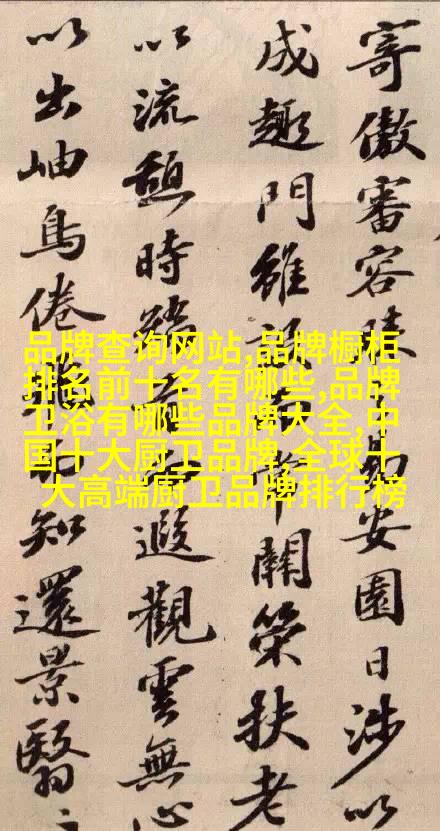 品牌查询网站,品牌橱柜
排名前十名有哪些,品牌
卫浴有哪些品牌大全,中
国十大厨卫品牌,全球十
大高端厨卫品牌排行榜
寄傲審容膝易安園日涉以
成趣門雖設常關策扶老
以流憩時矯遐觀雲無心
以出岫鳥倦知還景翳